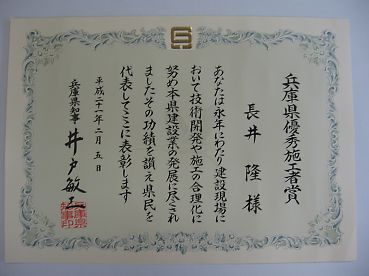 兵庫県優秀施工者賞
長井隆様
あなたは永年にわたり建設現場に
おいて技術開発や施工の合理化に
努め本県建設業の発展に尽くされ
ましたその功績を讃え県民を
代表してここに表彰します
平成二十一年二月五日
兵庫県知事 井戸敏三
兵庫県知事印